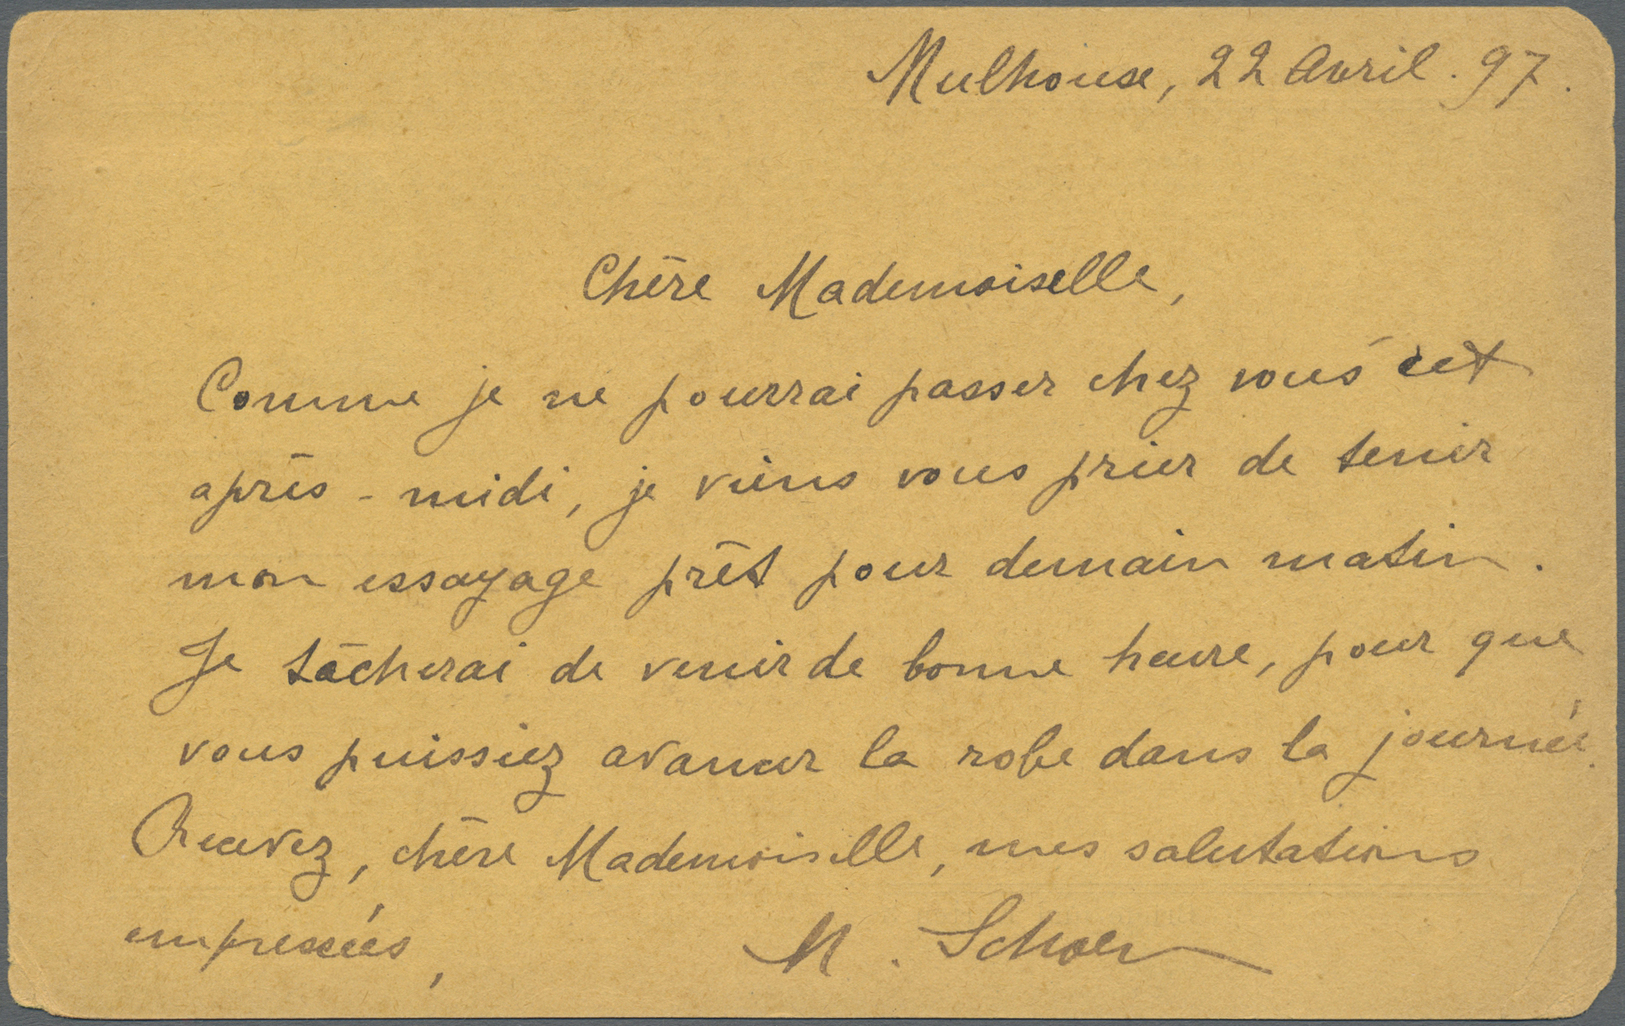 Mulhouse, 22 Avril. 97.
Chère Mademoiselle,
Comme je ne pourrai passer chez vous cet
après-midi, je viens vous prier de tenir
mon essayage prêt pour demain matin.
Je tâcherai de venir de bonne heure, pour que
vous puissiez avancer la robe dans la journée.
Recevez, chère Mademoiselle, mes salutations
empressées,
M. Schoen